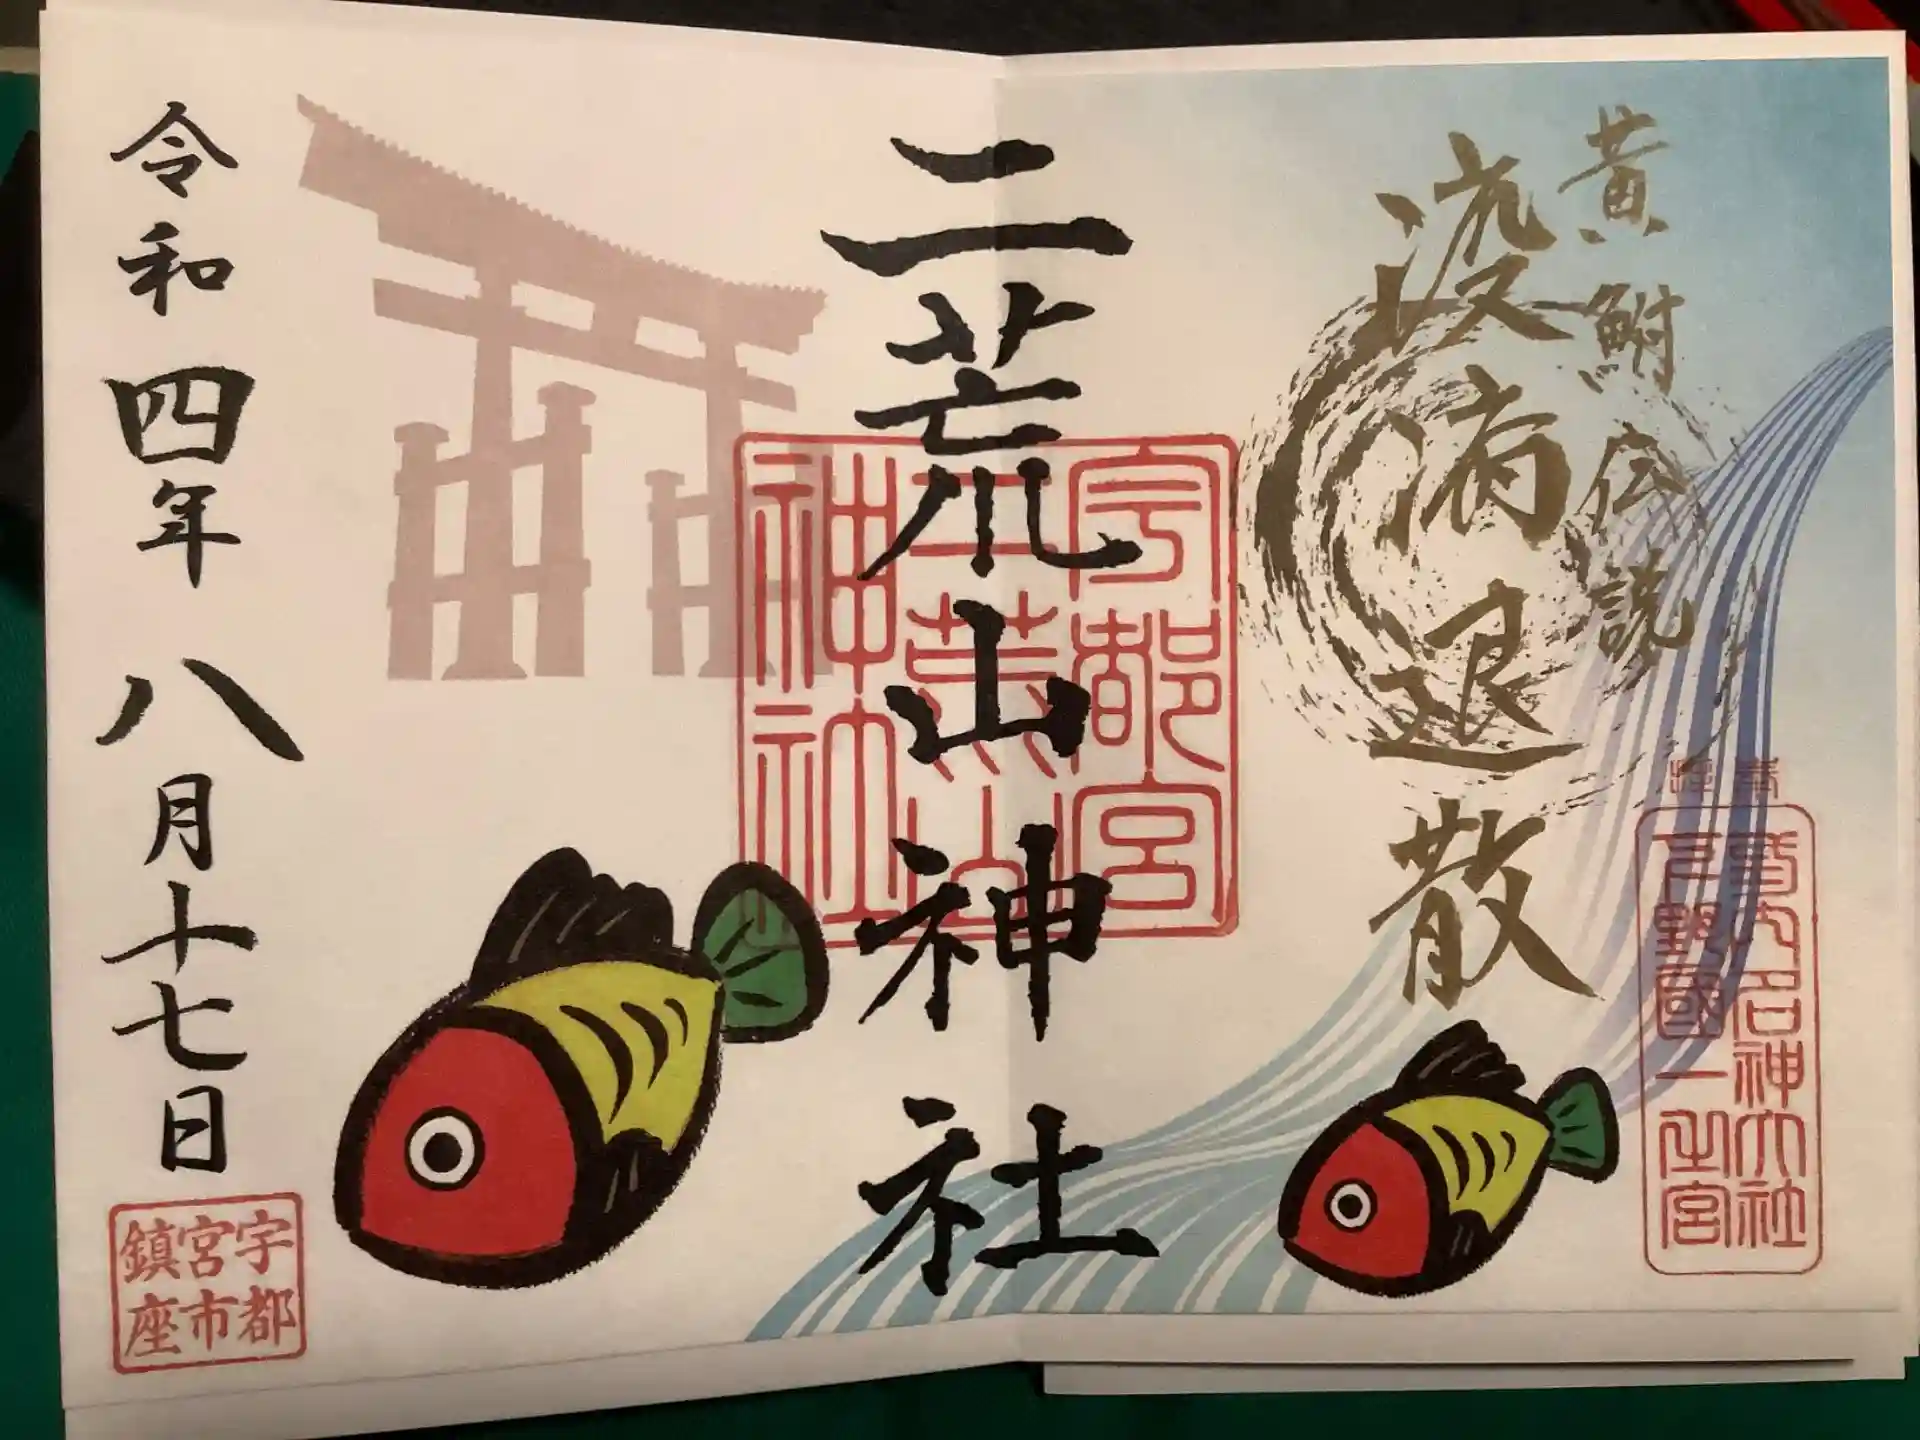 黄鮒伝説
疫病退散
式内名神大社
下野國一之宮
二荒山神社
宇都宮
二荒山
神社
令和四年八月十七日
宇都
宮市
鎮座